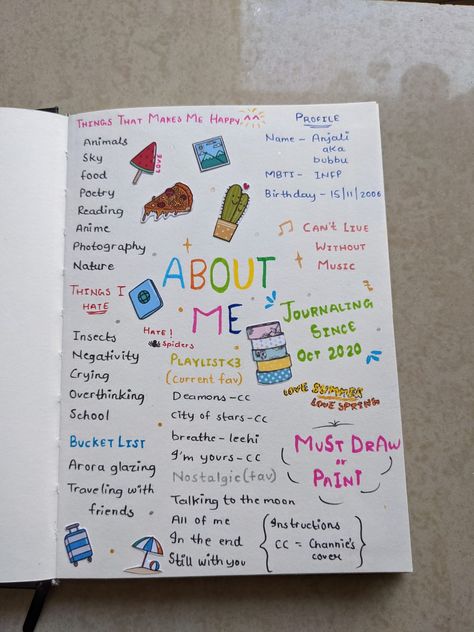 THINGS THAT MAKES ME HAPPY ^^
Animals
Sky
food
Poetry
Reading
Anime
Photography
Nature
LOVE
PROFILE
Name - Anjali
aka
bubbu
MBTI - INFP
Birthday - 15/11/2006
CAN'T LIVE
WITHOUT
MUSIC
ABOUT
ME
THINGS I
HATE
Insects
Negativity
Crying
Overthinking
School
HATE!
Spiders
JOURNALING
SINCE
OCT 2020
LOVE SUMMER
LOVE SPRING
PLAYLIST <3
(Current fav)
Deamons - CC
City of stars - CC
breathe - leehi
I'm yours - CC
Nostalgic (fav)
Talking to the moon
All of me
In the end
Still with you
MUST DRAW
or
PAINT
BUCKET LIST
Arora glazing
Traveling with
friends
Instructions
CC = Channie's
cover